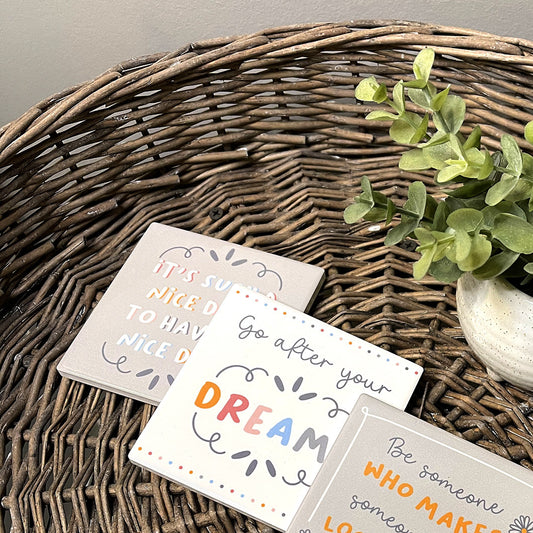 IT'S SUCH A
NICE D
TO HAV
NICE D
Go after your
DREAM
Be someone
WHO MAKES
someone
LO